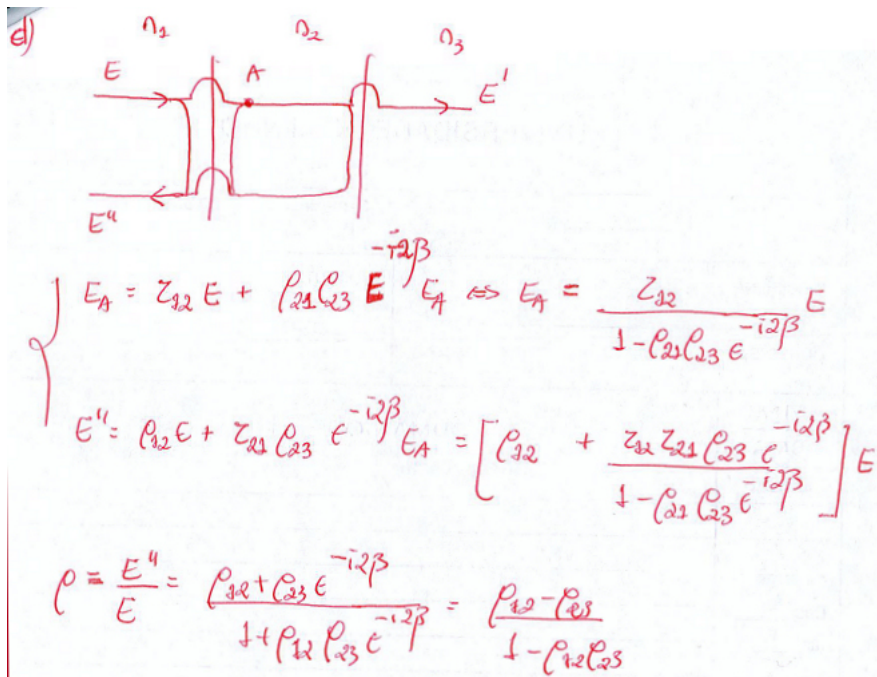 d)
n₁ n₂ n₃
E A E'
E"
E_A = τ₁₂ E + ρ₂₁ρ₂₃ E^{-i2β} E_A ⇔ E_A = τ₁₂ / (1 - ρ₂₁ρ₂₃ e^{-i2β}) E
E" = ρ₁₂ E + τ₂₁ ρ₂₃ e^{-i2β} E_A = [ρ₁₂ + τ₁₂ τ₂₁ ρ₂₃ e^{-i2β} / (1 - ρ₂₁ ρ₂₃ e^{-i2β})] E
ρ = E"/E = (ρ₁₂ + ρ₂₃ e^{-i2β}) / (1 + ρ₁₂ ρ₂₃ e^{-i2β}) = (ρ₁₂ - ρ₂₃) / (1 - ρ₁₂ρ₂₃)